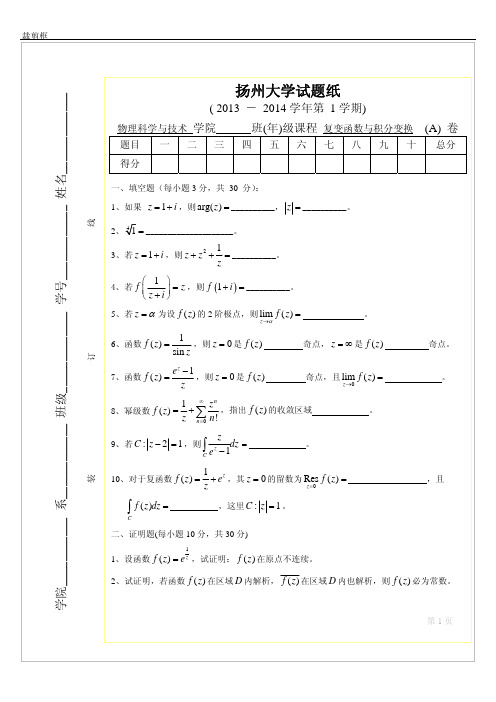 裁剪框
学院____________ 系____________ 班级____________ 学号____________ 姓名____________
装 订 线
扬州大学试题纸
( 2013 － 2014学年第 1 学期)
物理科学与技术 学院______班(年)级课程 复变函数与积分变换 (A) 卷
题目 一 二 三 四 五 六 七 八 九 十 总分
得分
一、填空题（每小题3分，共 30 分）：
1、如果 z=1+i，则arg(z)=__________，|z|=__________。
2、∜1=____________________。
3、若z=1+i，则z+z²+1/z=__________。
4、若f(1/(z+i))=z，则f(1+i)=__________。
5、若z=α为设f(z)的2阶极点，则lim_{z→α} f(z)= 。
6、函数f(z)=1/sin z，则z=0是f(z) 奇点，z=∞是f(z) 奇点。
7、函数f(z)=(e^z−1)/z，则z=0是f(z) 奇点，且lim_{z→0} f(z)= 。
8、幂级数f(z)=1/z+∑_{n=0}^{∞} z^n/n!，指出f(z)的收敛区域 。
9、若C:|z−2|=1，则∫_C z/(e^z−1) dz= 。
10、对于复函数f(z)=1/z+e^z，其z=0的留数为Res_{z=0} f(z)= ，且
∫_C f(z)dz= ，这里C:|z|=1。
二、证明题(每小题10分，共30分)
1、设函数f(z)=e^{1/z}，试证明：f(z)在原点不连续。
2、试证明，若函数f(z)在区域D内解析，\overline{f(z)}在区域D内也解析，则f(z)必为常数。
第 1 页